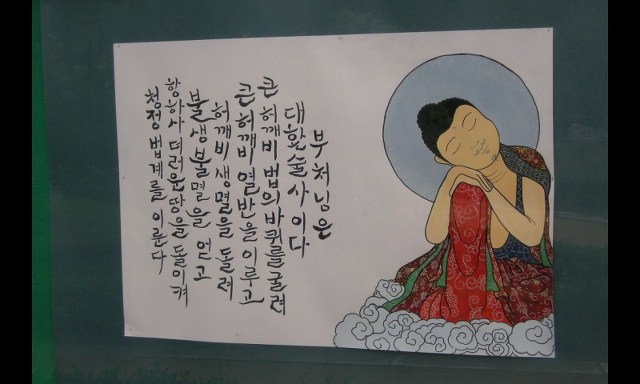 부처님은
대환술사이다
큰 허깨비 법의 바퀴를 굴려
큰 허깨비 열반을 이루고
허깨비 생멸을 돌려
불생불멸을 얻고
항하사 더러운 땅을 돌이켜
청정법계를 이룬다